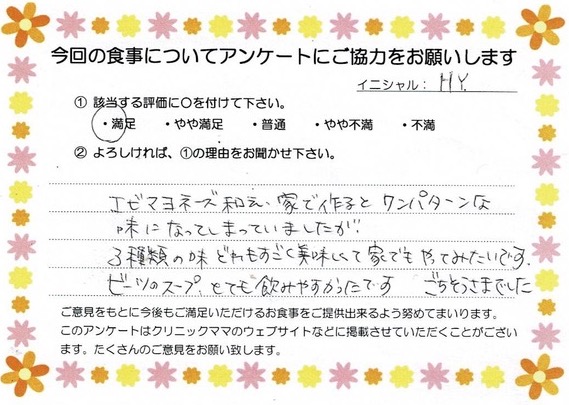 今回の食事についてアンケートにご協力をお願いします
イニシャル： H.Y.
① 該当する評価に○を付けて下さい。
・満足 ・やや満足 ・普通 ・やや不満 ・不満
② よろしければ、①の理由をお聞かせ下さい。
エビマヨネーズ和え、家で作るとワンパターンな
味になってしまっていましたが
3種類の味どれもすごく美味しくて家でもやってみたいです。
ビーツのスープ、とても飲みやすかったです ごちそうさまでした
ご意見をもとに今後もご満足いただけるお食事をご提供出来るよう努めてまいります。
このアンケートはクリニックママのウェブサイトなどに掲載させていただくことがござい
ます。たくさんのご意見をお願い致します。